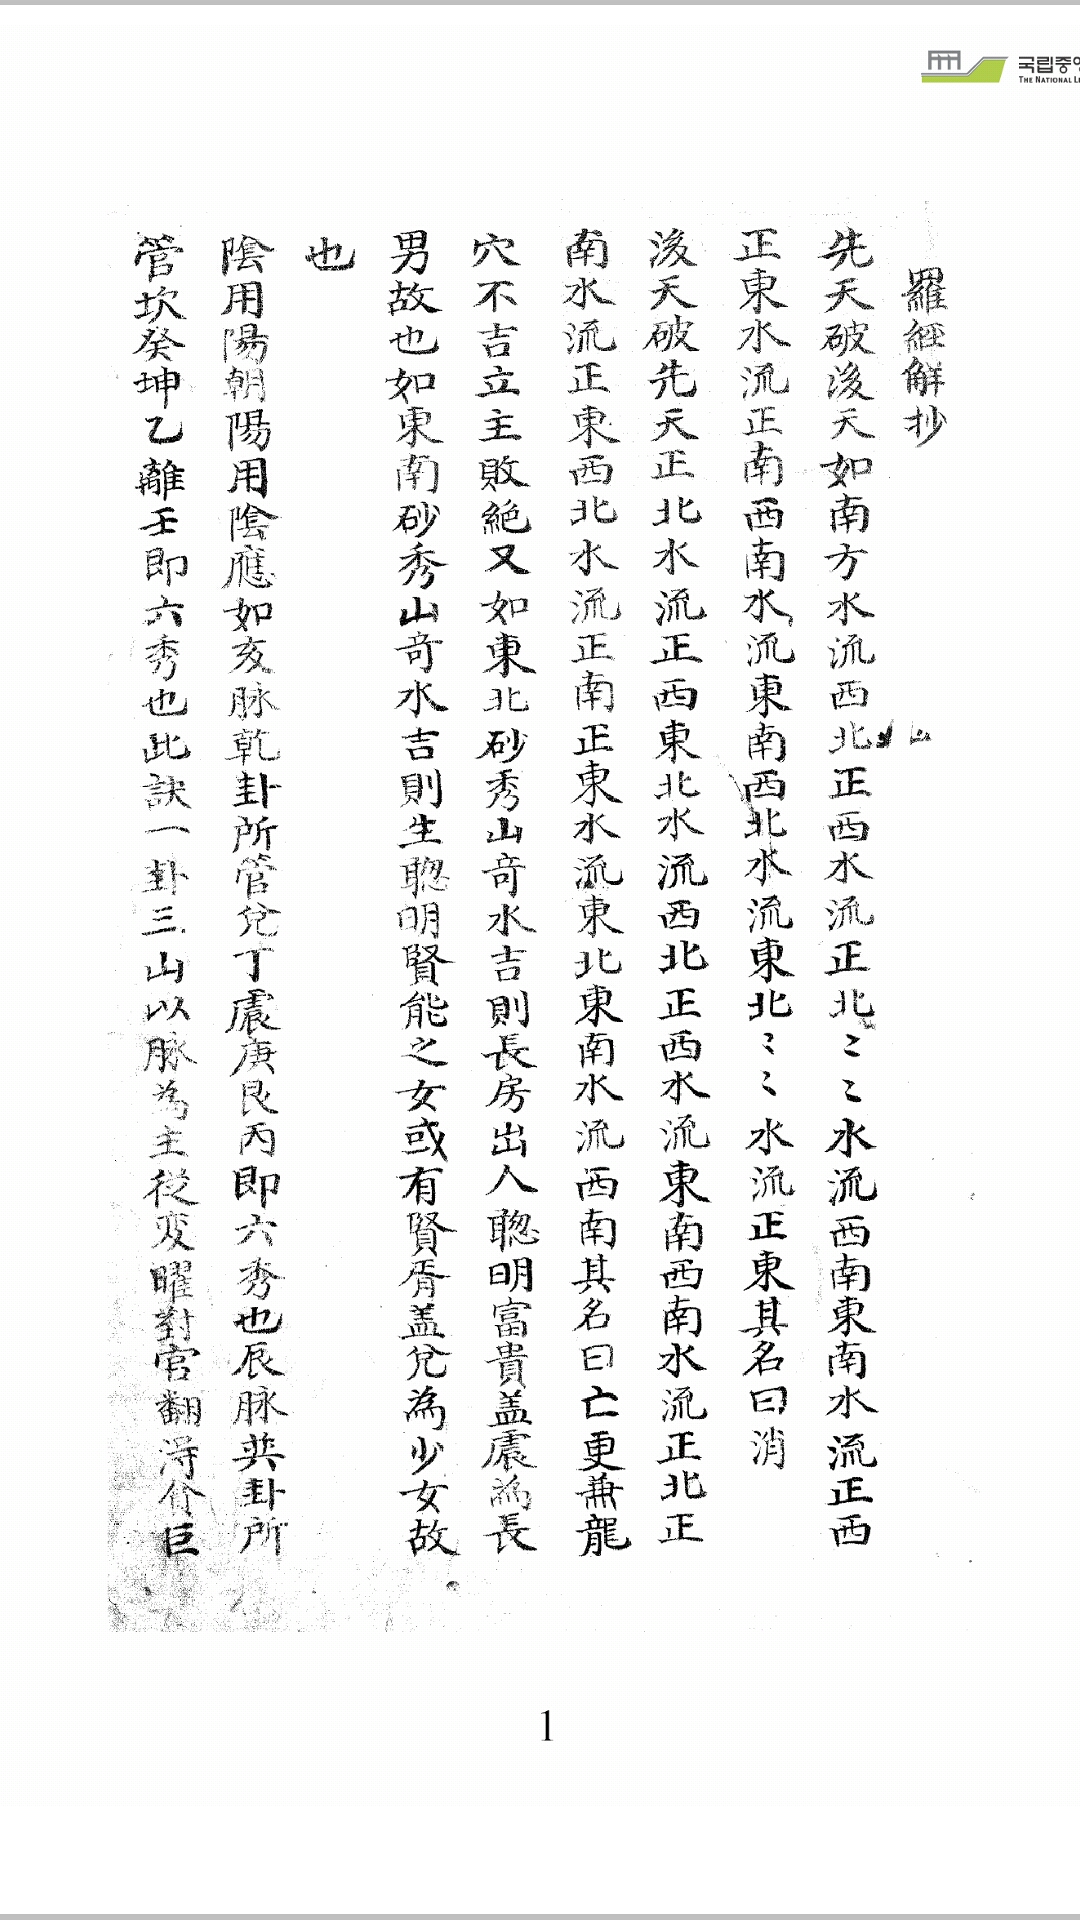 국립중앙
THE NATIONAL LI
羅經解抄
先天破後天如南方水流西北正西水流正北〻〻水流西南東南水流正西
山
正東水流正南西南水流東南西北水流東北〻〻水流正東其名曰消
後天破先天正北水流正西東北水流西北正西水流東南西南水流正北正
南水流正東西北水流正南正東水流東北東南水流西南其名曰亡更兼龍
穴不吉立主敗絶又如東北砂秀山奇水吉則長房出人聰明富貴盖震為長
男故也如東南砂秀山奇水吉則生聰明賢能之女或有賢婿盖兌為少女故
也
陰用陽朝陽用陰應如亥脉乾卦所管兌丁震庚艮丙即六秀也辰脉巽卦所
管坎癸坤乙離壬即六秀也此訣一卦三山以脉為主從变曜對官翻淂貪巨
1